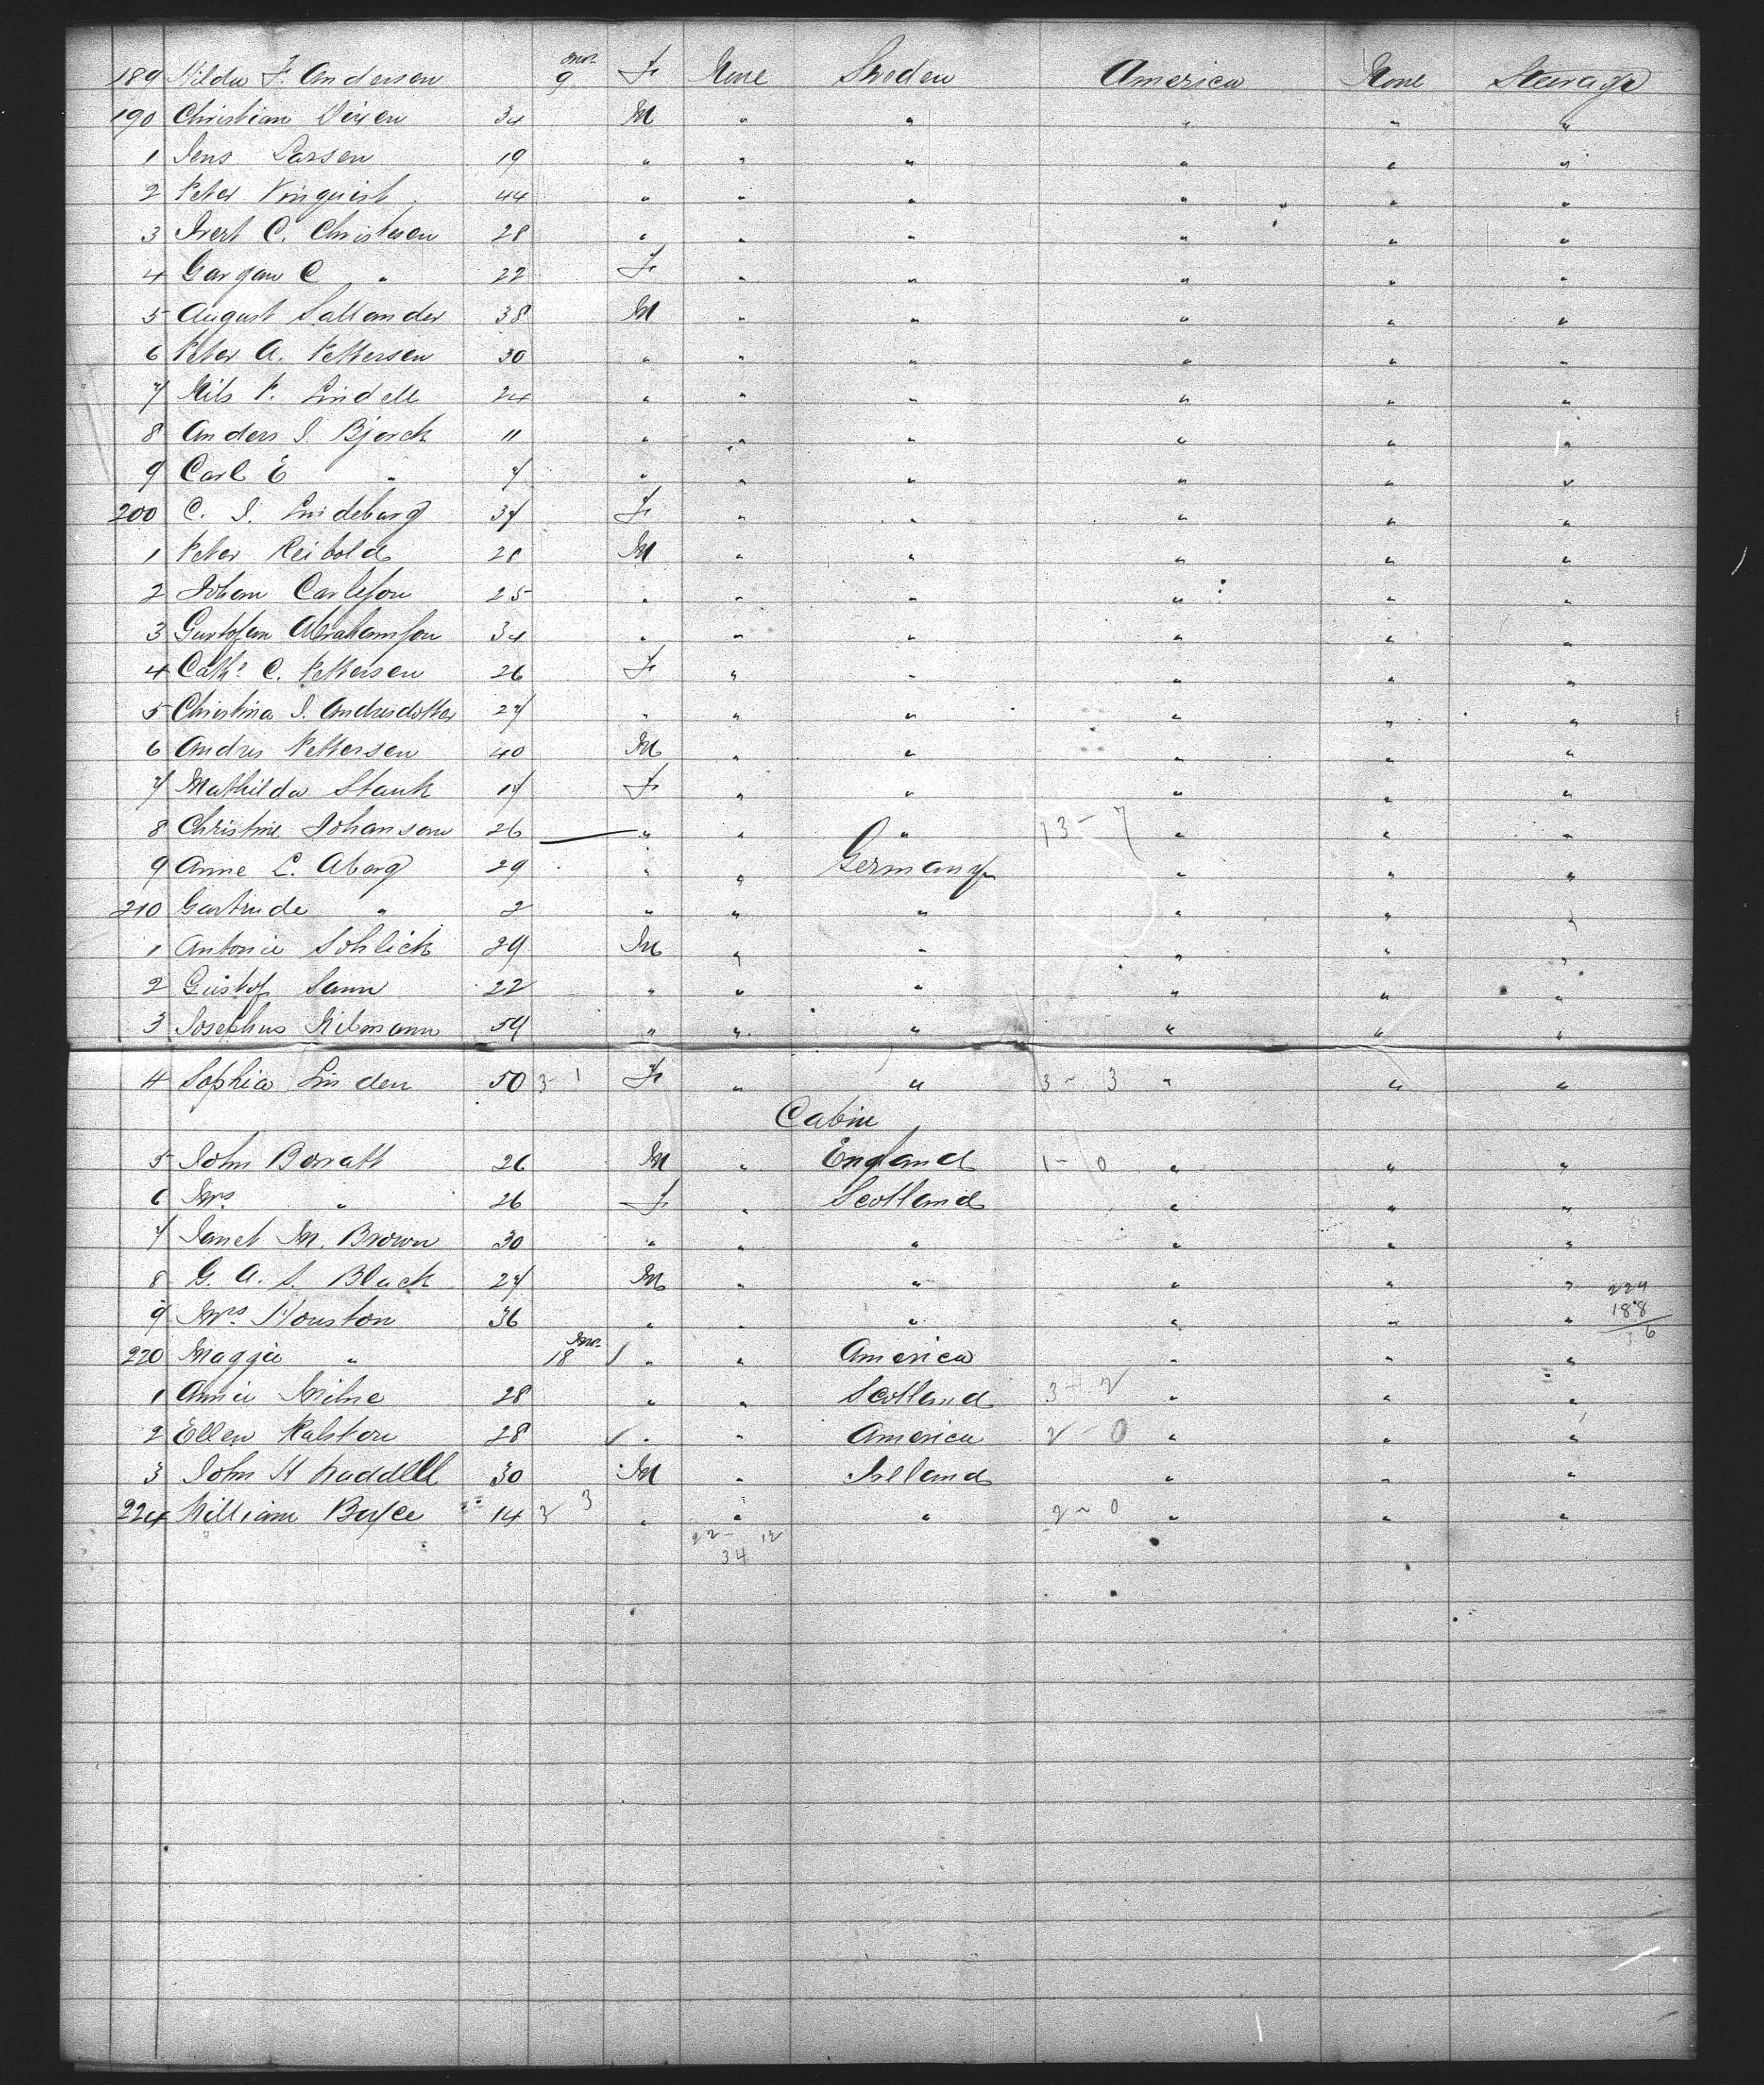 189 Hilda F. Andersen mos. 9 F. None Sweden America None Steerage
190 Christian Vixen 34 M " " " " "
1 Jens Larsen 19 " " " " " "
2 Peter Vinquist 44 " " " " " "
3 Ivert C. Christesen 28 " " " " " "
4 Gargan C " 22 F. " " " " "
5 August Sallander 38 M " " " " "
6 Peter A. Pettersen 30 " " " " " "
7 Nils P. Lindell 24 " " " " " "
8 Anders I. Bjorck 11 " " " " " "
9 Carl E " 7 " " " " " "
200 C. I. Lindeborg 37 F. " " " " "
1 Peter Reibold 28 M " " " " "
2 Johan Carlsson 25 " " " " " "
3 Gustofan Abrahamson 34 " " " " " "
4 Cath. C. Pettersen 26 F. " " " " "
5 Christina I. Andersdotter 27 " " " " " "
6 Andres Pettersen 40 M " " " " "
7 Mathilda Stank 17 F. " " " " "
8 Christine Johanson 26 " " " 13-7 " " "
9 Anne L. Aborg 29 " " Germany " " "
210 Gertrude " 2 " " " " " "
1 Antonie Sohlich 29 M " " " " "
2 Gustof Sann 22 " " " " " "
3 Josephus Hilmann 54 " " " " " "
4 Sophia Linden 50 3 1 F. " " 3-3 " " "
Cabin
5 John Borratt 26 M " England 1-0 " " "
6 Mrs. " 26 F. " Scotland " " "
7 Janet M. Brown 30 " " " " " "
8 G. A. S. Black 27 M " " " " "
9 Mrs. Houston 36 " " " " " "
224
188
36
220 Maggie " mos. 18 " " America " " "
1 Annie Milne 28 " " Scotland 3-2 " " "
2 Ellen Ralston 28 " " America 2-0 " " "
3 John H Waddell 30 M " Ireland " " "
224 William Boyce 14 3 3 " " " 2-0 " " "
22- 12
34